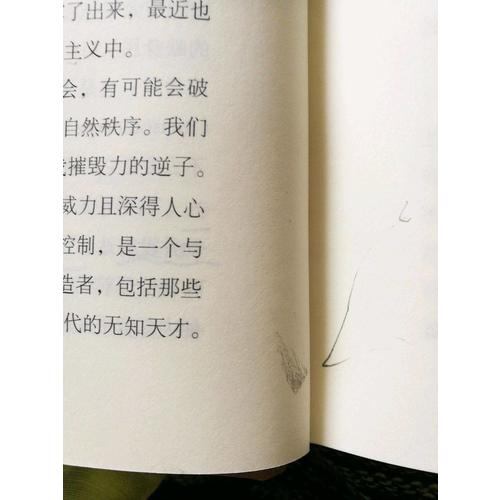 了出来，最近也
主义中。
会，有可能会破
自然秩序。我们
摧毁力的逆子。
威力且深得人心
控制，是一个与
造者，包括那些
代的无知天才。